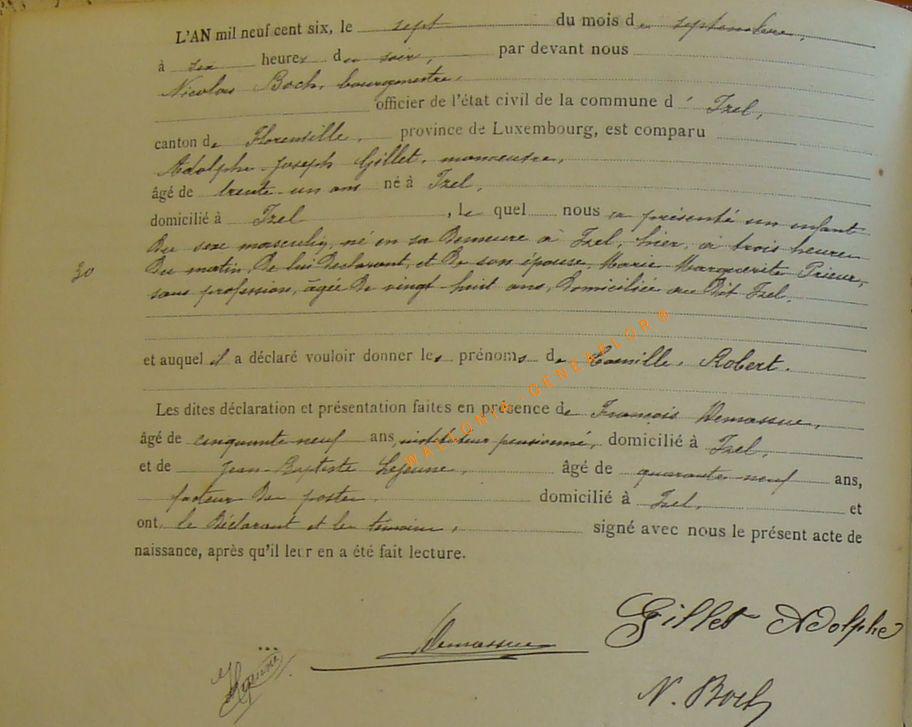 L'AN mil neuf cent six, le sept du mois de septembre,
à six heures du soir, par devant nous
Nicolas Boch, bourgmestre,
officier de l'état civil de la commune d' Izel,
canton de Florenville, province de Luxembourg, est comparu
Adolphe Joseph Gillet, manoeuvre,
âgé de trente un ans né à Izel,
domicilié à Izel, le quel nous a présenté un enfant
du sexe masculin, né en sa demeure à Izel, hier, à trois heures
30
du matin, de lui déclarant, et de son épouse Marie Marguerite
sans profession, âgée de vingt huit ans, domiciliée au dit Izel.
et auquel il a déclaré vouloir donner les prénoms de Camille, Robert.
Les dites déclaration et présentation faites en présence de François Demassue,
âgé de cinquante neuf ans, instituteur pensionné, domicilié à Izel,
et de Jean-Baptiste Lejeune, âgé de quarante neuf ans,
facteur des postes, domicilié à Izel, et
ont, le déclarant et les témoins, signé avec nous le présent acte de
naissance, après qu'il leur en a été fait lecture.
WALLONIA-GENEAFLOR®
Gillet Adolphe
Demassue
Lejeune
N. Boch